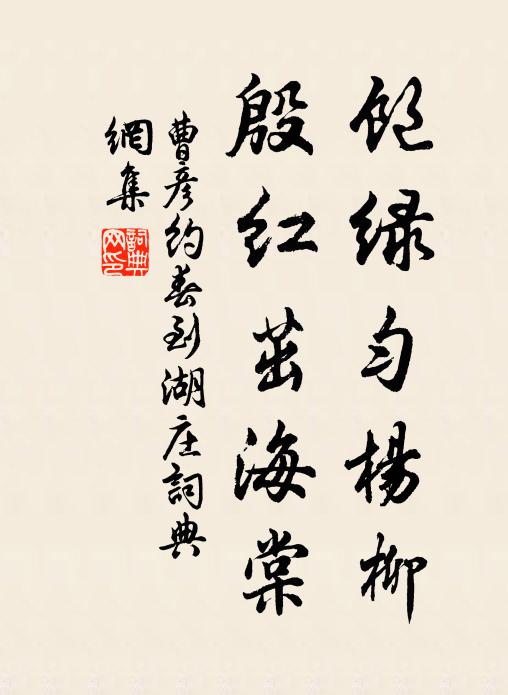 饱绿匀楊柳
殷红茁海棠
曹彦约春到湖庄詞典
網集
詞典
网印